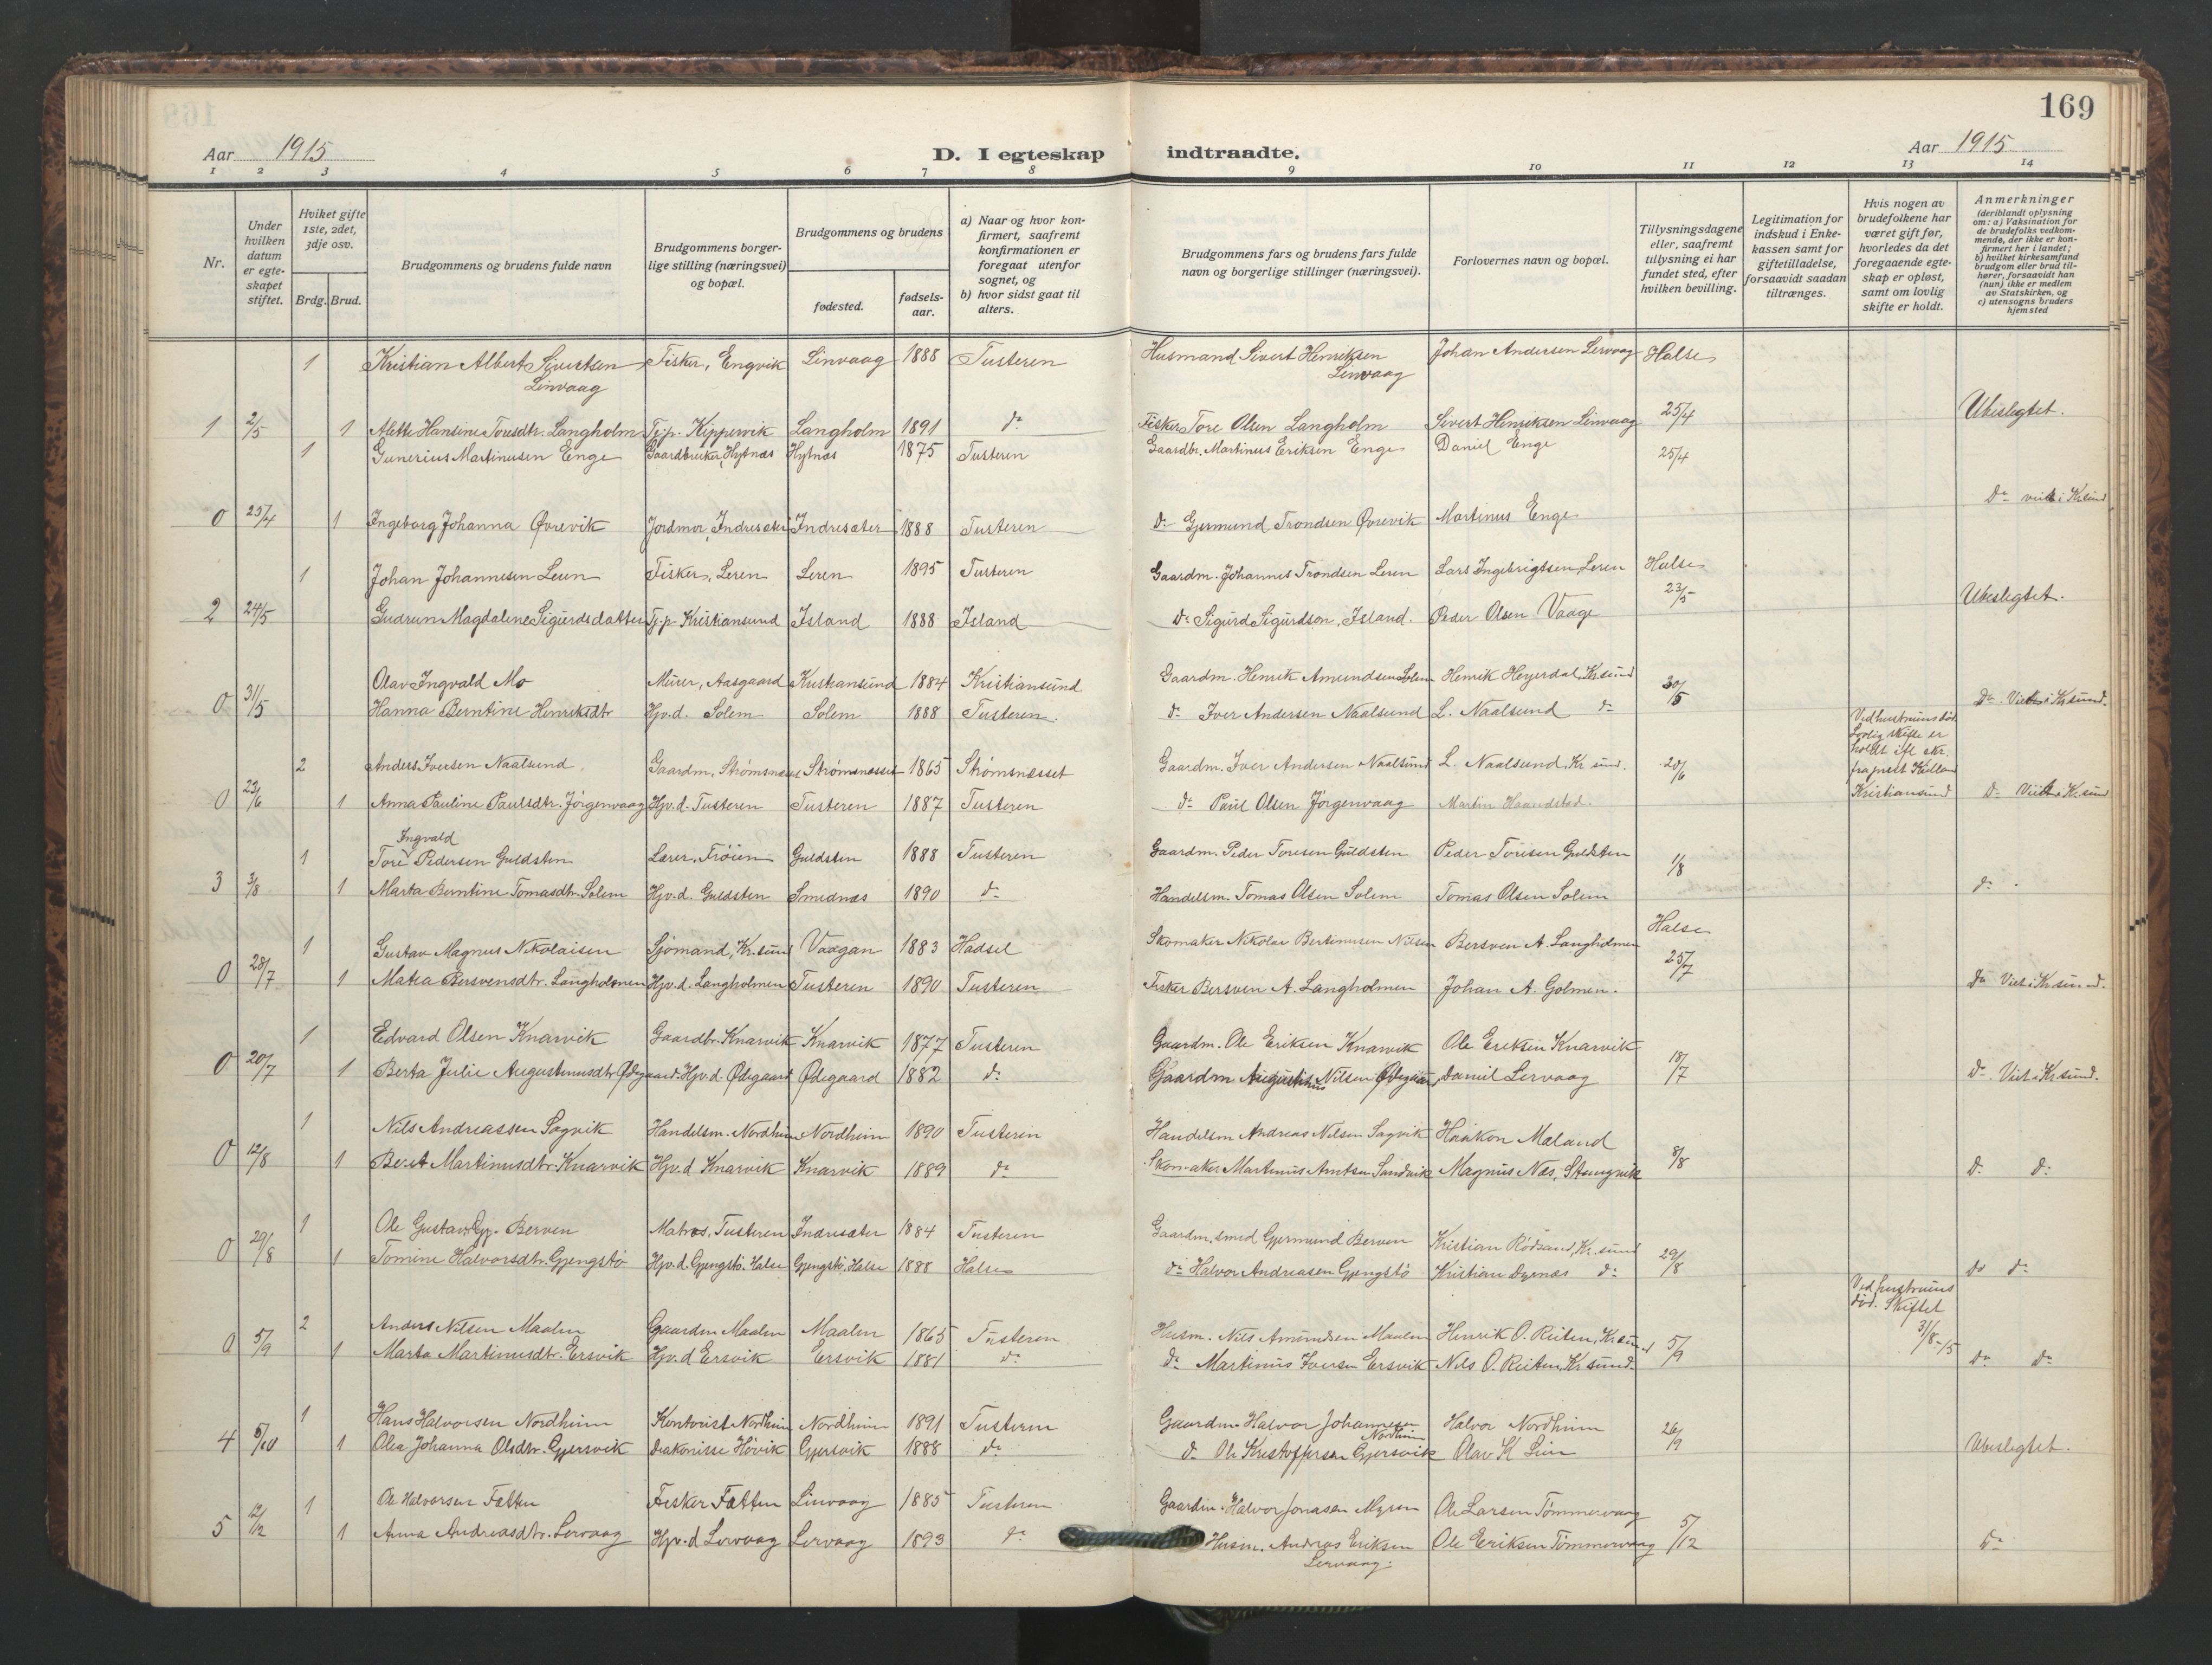 169
Aar 1915
D. I egteskap indtraadte.
Aar 1915
1 2 3 4 5 6 7 8 9 10 11 12 13 14
Nr.
Under hvilken datum er egteskapet stiftet.
Hviket gifte 1ste, 2det, 3dje osv.
Brdg. Brud.
Brudgommens og brudens fulde navn
Brudgommens borgerlige stilling (næringsvei) og bopæl.
Brudgommens og brudens
fødested.
fødsels-aar.
a) Naar og hvor konfirmert, saafremt konfirmationen er foregaat utenfor sognet, og
b) hvor sidst gaat til alters.
Brudgommens fars og brudens fars fulde navn og borgerlige stillinger (næringsvei).
Forlovernes navn og bopæl.
Tillysningsdagene eller, saafremt tillysning ei har fundet sted, efter hvilken bevilling.
Legitimation for indskud i Enkekassen samt for giftetilladelse, forsaavidt saadan tiltrænges.
Hvis nogen av brudefolkene har været gift før, hvorledes da det foregaaende egteskap er opløst, samt om lovlig skifte er holdt.
Anmerkninger
(deriblandt oplysning om: a) Vaksination for de brudefolks vedkommende, der ikke er konfirmert her i landet; b) hvilket kirkesamfund brudgom eller brud tilhører, forsaavidt han (hun) ikke er medlem av Statskirken, og c) utensogns bruders hjemsted
1 Kristian Albert Sivertsen Linvaag Fisker, Engvik Linvaag 1888 Tusteren Husmand Sivert Henriksen Linvaag Johan Andersen Lervaag Halse
1 2/5 1 Alette Hansine Toresdtr. Langholm Tj.p. Kippervik Langholm 1891 do Fisker Tore Olsen Langholm Sivert Henriksen Linvaag 25/4 Ubeslegtet.
1 Gunerius Martinusen Enge Gaardbruker, Hytnæs Hytnæs 1875 Tusteren Gaardbr. Martinus Eriksen Enge Daniel Enge 25/4
0 25/4 1 Ingeborg Johanna Øvrevik Jordmor, Indresæter Indresæter 1888 Tusteren do Gjermund Trondsen Øvrevik Martinus Enge Do viet i Kr.sund
1 Johan Johannesen Leren Fisker, Leren Leren 1895 Tusteren Gaardm. Johannes Trondsen Leren Lars Ingebrigtsen Leren Halse
2 24/5 Gudrun Magdalene Sigurdsdatter Tj.p. Kristiansund Island 1888 Island do Sigurd Sigurdson, Island. Peder Olsen Vaage 23/5 Ubeslegtet.
Olav Ingvald Mo Murer, Aasgaard Kristiansund 1884 Kristiansund Gaardm. Henrik Amundsen Solem Henrik Heyerdal, Kr.sund
0 31/5 Hanna Berntine Henriksdtr Hjv.d. Solem Solem 1888 Tusteren. do Iver Andersen Naalsund L. Naalsund do 30/5 Do. Viet i Kr.sund.
2 Anders Iversen Naalsund Gaardm, Strømsnæsset Strømsnæsset 1865 Strømsnæsset Gaardm. Iver Andersen Naalsund L. Naalsund, Kr sund. 20/6 Ved hustruens død. Lovlig skifte er holdt ifl. skr. fra prest Kristiansund
0 23/6 1 Anna Pauline Paulsdtr. Jörgenvaag Hjv.d. Tusteren Tusteren 1887 Tusteren do Paul Olsen Jörgenvaag Martin Haandstad. Do Viet i Kr.sund
1 Tore Ingvald Pedersen Guldsten Lærer, Fröien Guldsten 1888 Tusteren Gaardm. Peder Toresen Guldsten Peder Toresen Guldsten 1/8
3 3/8 1 Marta Berntine Tomasdtr. Solem Hjv.d. Guldsten Smednæs 1890 do Handelsm. Tomas Olsen Solem Tomas Olsen Solem do
1 Gustav Magnus Nikolaisen Sjömand, Kr.sund Vaagan 1883 Hadsel Skomaker Nikolai Bertinusen Nilsen Bersven A. Langholmen Halse
0 28/7 1 Matea Bersvensdtr. Langholmen Hjv.d. Langholmen Tusteren 1890 Tusteren Fisker Bersven A. Langholmen Johan A. Golmen. 25/7 Do Viet i Kr sund.
1 Edvard Olsen Knarvik Gaardbr. Knarvik Knarvik 1877 Tusteren Gaardm. Ole Eriksen Knarvik Ole Eriksen Knarvik
0 20/7 1 Berta Julie Augustinusdtr Ødegaard Hjv.d. Ødegaard Ødegaard 1882 do Gaardm Augustinus Nilsen Ødegaard Daniel Lervaag 18/7 Do. Viet i Kr.sund.
1 Nils Andreassen Sagvik Handelsm. Nordheim Nordheim 1890 Tusteren Handelsm Andreas Nilsen Sagvik Haakon Maland
0 12/8 1 Berit Martinusdtr. Knarvik Hjv.d Knarvik Knarvik 1889 do Skomaker Martinus Arntsen Sandvik Magnus Næs, Stangvik 8/8 Do Do
1 Ole Gustav Gj. Berven Matros, Tusteren Indresæter 1884 Tusteren Gaardm, smed Gjermund Berven Kristian Rödsand, Kr. sund
0 29/8 1 Tomine Halvorsdtr. Gjengstö Hjv.d. Gjengstö, Halse Gjengstö, Halse 1888 Halse do Halvor Andreasen Gjengstö Kristian Dyrnæs do 29/8 Do do
2 Anders Nilsen Maalen Gaardm Maalen Maalen 1865 Tusteren Husm. Nils Amundsen Maalen Henrik O. Reiten, Kr.sund Ved hustruens død. Skiftet 31/8-15
0 5/9 1 Marta Martinusdtr. Ersvik Hjv.d Ersvik Ersvik 1881 do do Martinus Iversen Ersvik Nils O. Reiten, Kr sund. 5/9 Do Do
1 Hans Halvorsen Nordheim Kontorist Nordheim Nordheim 1891 Tusteren Gaardm. Halvor Johannesen Nordheim Halvor Nordheim 26/9
4 5/10 1 Olea Johanna Olsdtr. Gjersvik Diakonisse Hövik Gjersvik 1888 do do Ole Kristoffersen Gjersvik Olav K Lien Ubeslegtet.
1 Ole Halvorsen Fætten Fisker Fætten Linvaag 1885 Tusteren Gaardm. Halvor Jonasen Myren Ole Larsen Tömmervaag
5 12/12 1 Anna Andreasdtr. Lervaag Hjv.d Lervaag Lervaag 1893 do Husm. Andreas Eriksen Lervaag. Ole Eriksen Tömmervaag 5/12 Do